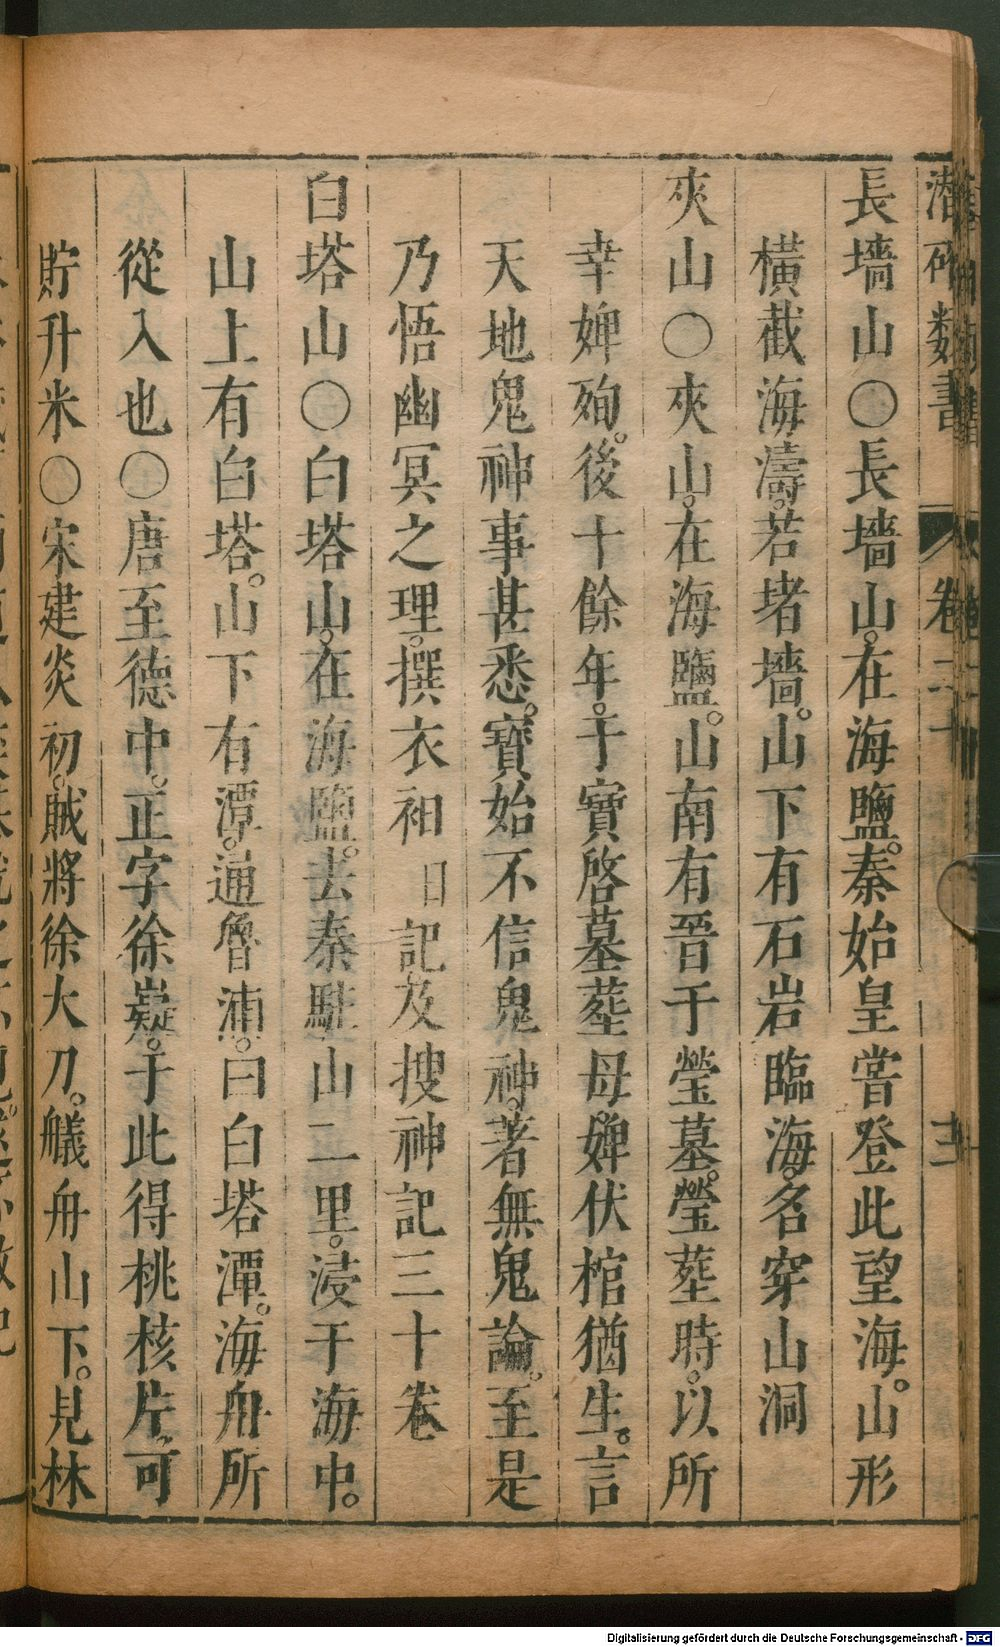 潛確類書 卷二十
長墻山〇長墻山。在海鹽。秦始皇嘗登此望海。山形
橫截海濤。若堵墻。山下有石岩臨海。名穿山洞
夾山〇夾山。在海鹽。山南有晉干瑩墓。瑩葬時。以所
幸婢殉。後十餘年。干寶啓墓葬母。婢伏棺猶生。言
天地鬼神事甚悉。寶始不信鬼神。著無鬼論。至是
乃悟幽冥之理。撰衣𥘉日記及搜神記三十卷
白塔山〇白塔山。在海鹽。去秦駐山二里。浸于海中。
山上有白塔。山下有潭。通魯浦。曰白塔潭。海舟所
從入也〇唐至德中。正字徐嶷。于此得桃核片。可
貯升米〇宋建炎初。賊將徐大刀。艤舟山下。見林
Digitalisierung gefördert durch die Deutsche Forschungsgemeinschaft - DFG